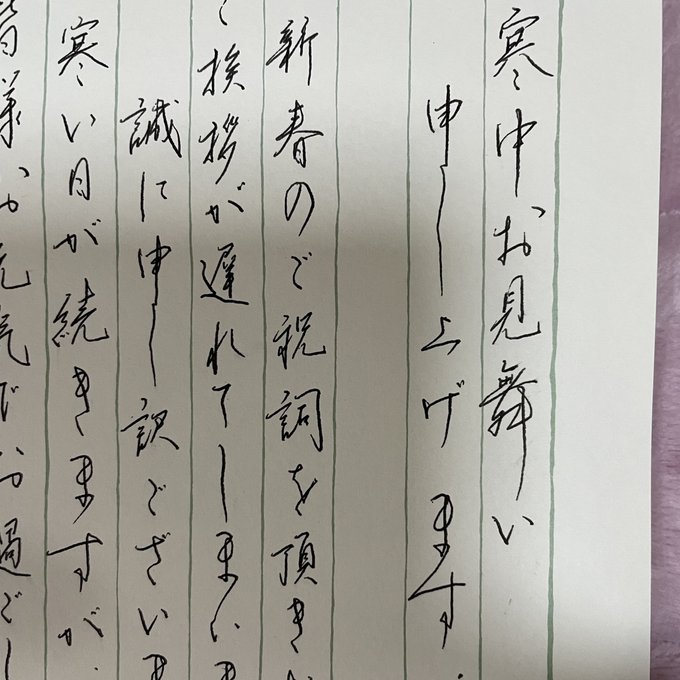 寒中お見舞い
申し上げます
新春のご祝詞を頂き
ご挨拶が遅れてしまいま
誠に申し訳ございま
寒い日が続きますが、
皆様お元気でお過ごし